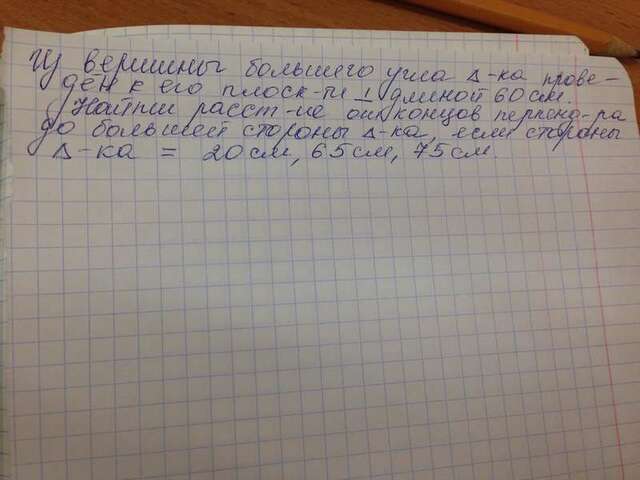 Из вершины большего угла Δ-ка прове-
ден к его плоск-ти ⊥ длиной 60 см.
Найти расст-ие от концов перпенд-ра
до большей стороны Δ-ка, если стороны
Δ-ка = 20 см, 65 см, 75 см.